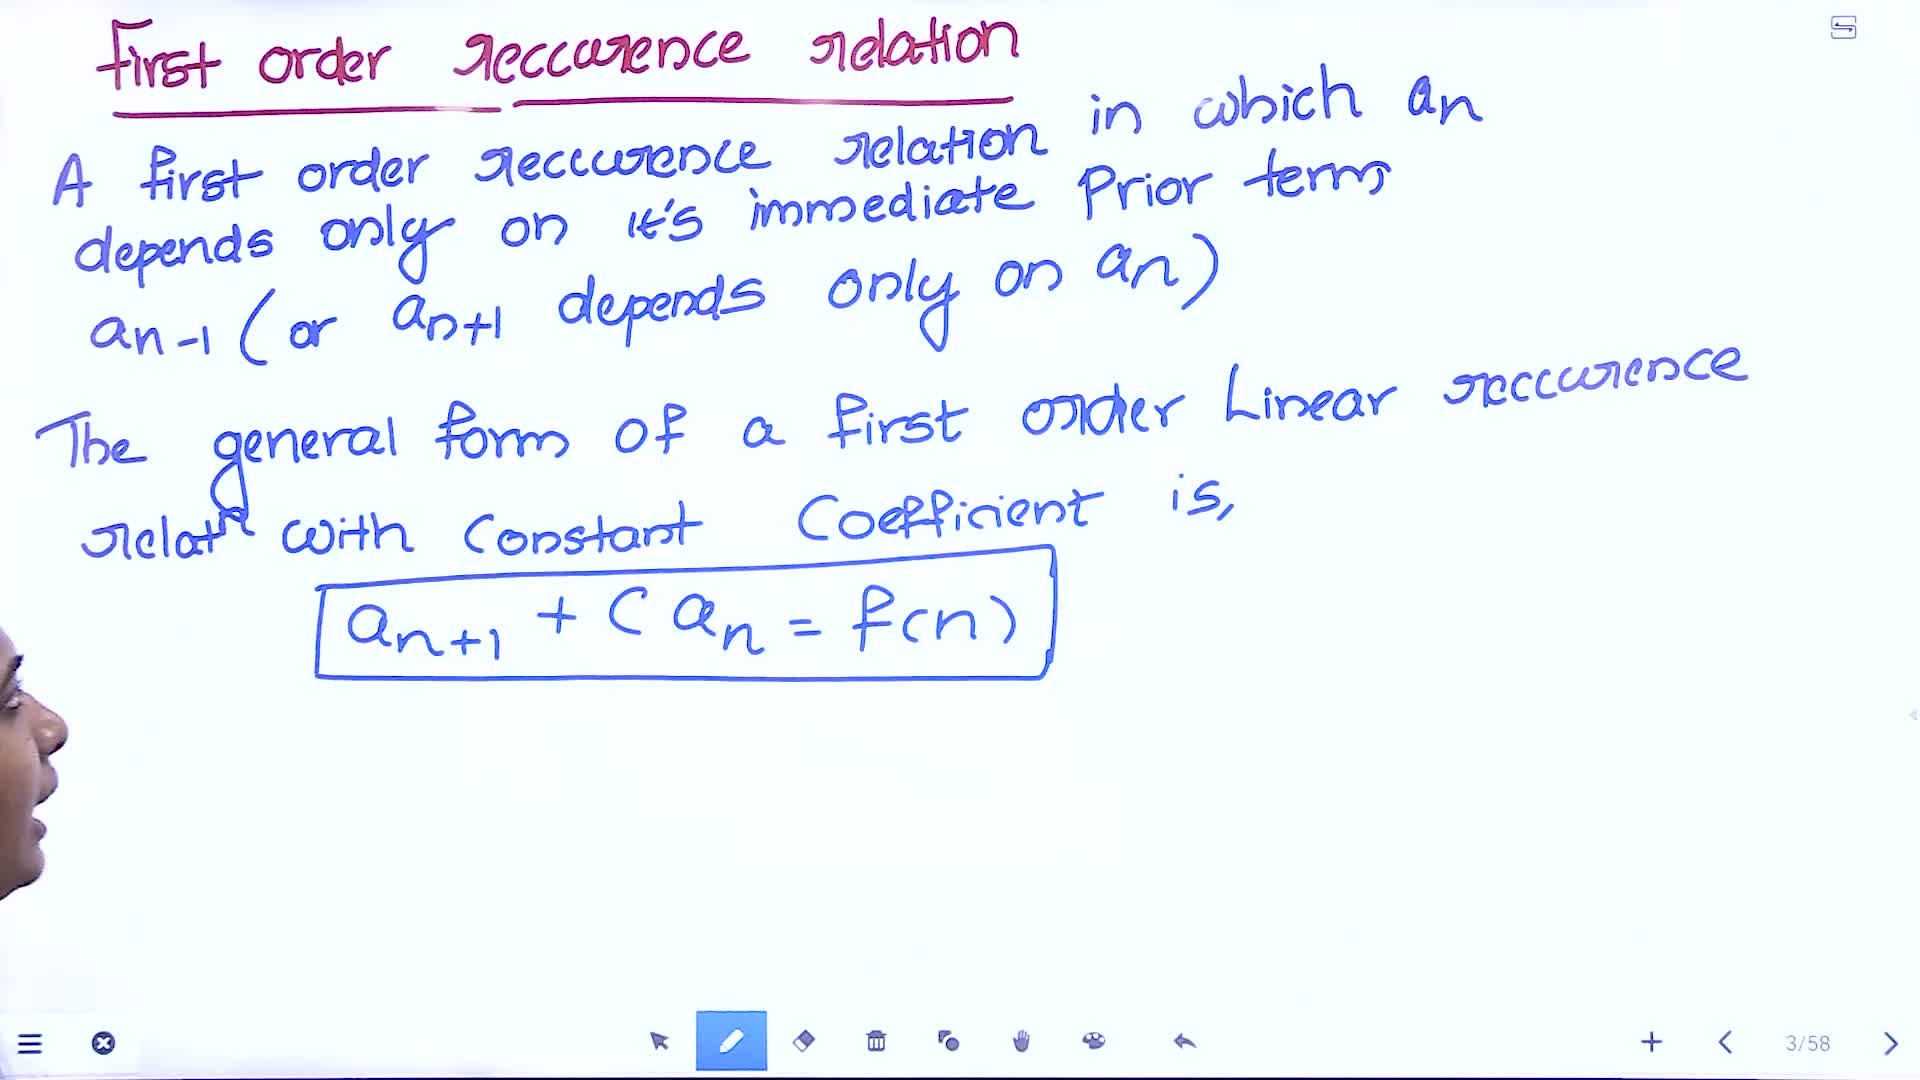 First order reccurence relation
A first order reccurence relation in which an
depends only on it's immediate Prior term,
an-1 (or an+1 depends only on an)
The general form of a first order Linear reccurence
relatn with Constant Coefficient is,
an+1 + C an = f(n)
3/58